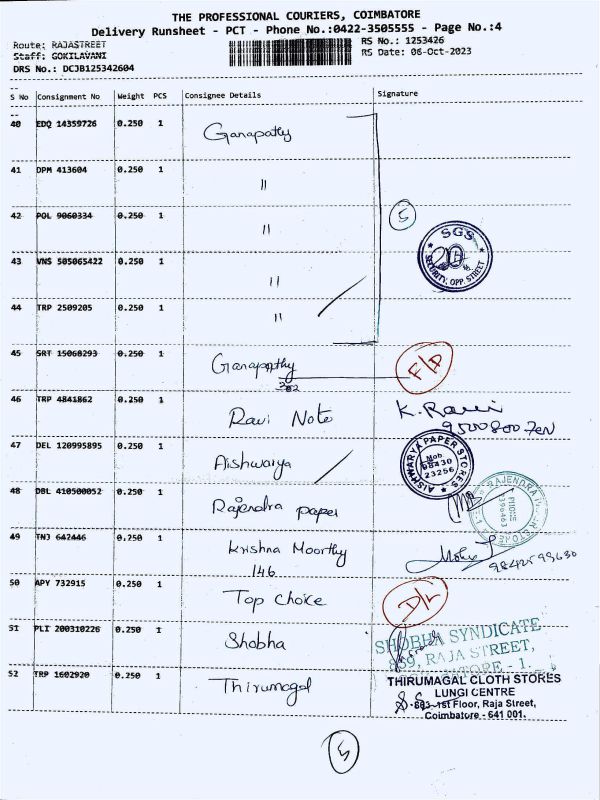 THE PROFESSIONAL COURIERS, COIMBATORE
Delivery Runsheet - PCT - Phone No.:0422-3505555 - Page No.:4
Route: RAJASTREET
RS No.: 1253426
Staff: GOKILAVANI
RS Date: 06-Oct-2023
DRS No.: DCJB125342604
S No Consignment No Weight PCS Consignee Details Signature
40 EDQ 14359726 0.250 1 Ganapathy
41 DPM 413604 0.250 1 "
42 POL 9060334 0.250 1 "
5
SGS
SECURITY, OPP. STREET
43 VNS 505065422 0.250 1 "
44 TRP 2509205 0.250 1 "
45 SRT 15060293 0.250 1 Ganapathy
F/D
46 TRP 4841862 0.250 1 Ravi Note K. Ravi
47 DEL 120995895 0.250 1 Aishwarya
AISHWARYA PAPER STORES
Mob.
98430
23256
48 DBL 410500052 0.250 1 Rajendra paper
RAJENDRA
PHONE
49 TNJ 642446 0.250 1 Krishna Moorthy
146
50 APY 732915 0.250 1 Top Choice
D/L
51 PLT 200310226 0.250 1 Shobha
SHOBHA SYNDICATE
869, RAJA STREET,
52 TRP 1602920 0.250 1 Thirumagal
THIRUMAGAL CLOTH STORES
LUNGI CENTRE
803-1st Floor, Raja Street,
Coimbatore - 641 001.
5